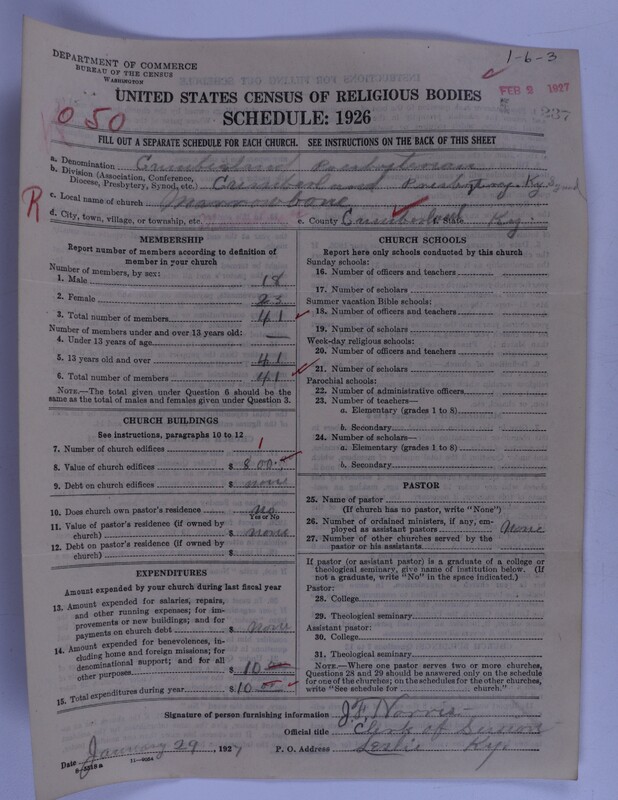 1-6-3
DEPARTMENT OF COMMERCE
BUREAU OF THE CENSUS
WASHINGTON
FEB 9 1927
UNITED STATES CENSUS OF RELIGIOUS BODIES
237
050
SCHEDULE: 1926
FILL OUT A SEPARATE SCHEDULE FOR EACH CHURCH. SEE INSTRUCTIONS ON THE BACK OF THIS SHEET
a. Denomination Cumberland Presbyterian
b. Division (Association, Conference, Diocese, Presbytery, Synod, etc.) Cumberland Presbytery. Ky Synod
R
c. Local name of church Marrowbone
d. City, town, village, or township, etc. e. County Cumberland State Ky.
MEMBERSHIP
Report number of members according to definition of
member in your church
Number of members, by sex:
1. Male 18
2. Female 23
3. Total number of members 41
Number of members under and over 13 years old:
4. Under 13 years of age —
5. 13 years old and over 41
6. Total number of members 41
NOTE.—The total given under Question 6 should be the
same as the total of males and females given under Question 3.
CHURCH BUILDINGS
See instructions, paragraphs 10 to 12
7. Number of church edifices 1
8. Value of church edifices $ 800.
9. Debt on church edifices $ none
10. Does church own pastor's residence No
Yes or No
11. Value of pastor's residence (if owned by
church) $ none
12. Debt on pastor's residence (if owned by
church) $
EXPENDITURES
Amount expended by your church during last fiscal year
13. Amount expended for salaries, repairs,
and other running expenses; for im-
provements or new buildings; and for
payments on church debt $ none
14. Amount expended for benevolences, in-
cluding home and foreign missions; for
denominational support; and for all
other purposes $ 10 00
15. Total expenditures during year $ 10 00
CHURCH SCHOOLS
Report here only schools conducted by this church
Sunday schools:
16. Number of officers and teachers
17. Number of scholars
Summer vacation Bible schools:
18. Number of officers and teachers
19. Number of scholars
Week-day religious schools:
20. Number of officers and teachers
21. Number of scholars
Parochial schools:
22. Number of administrative officers
23. Number of teachers—
a. Elementary (grades 1 to 8)
b. Secondary
24. Number of scholars—
a. Elementary (grades 1 to 8)
b. Secondary
PASTOR
25. Name of pastor
(If church has no pastor, write "None")
26. Number of ordained ministers, if any, em-
ployed as assistant pastors None
27. Number of other churches served by the
pastor or his assistants
If pastor (or assistant pastor) is a graduate of a college or
theological seminary, give name of institution below. (If
not a graduate, write "No" in the space indicated.)
Pastor:
28. College
29. Theological seminary
Assistant pastor:
30. College
31. Theological seminary
NOTE.—Where one pastor serves two or more churches,
Questions 28 and 29 should be answered only on the schedule
for one of the churches; on the schedules for the other churches,
write "See schedule for church."
Signature of person furnishing information J.F. Norris
Official title Clerk of Session
Date January 29, 1927 P. O. Address Leslie Ky.
8-5518a 11-9054